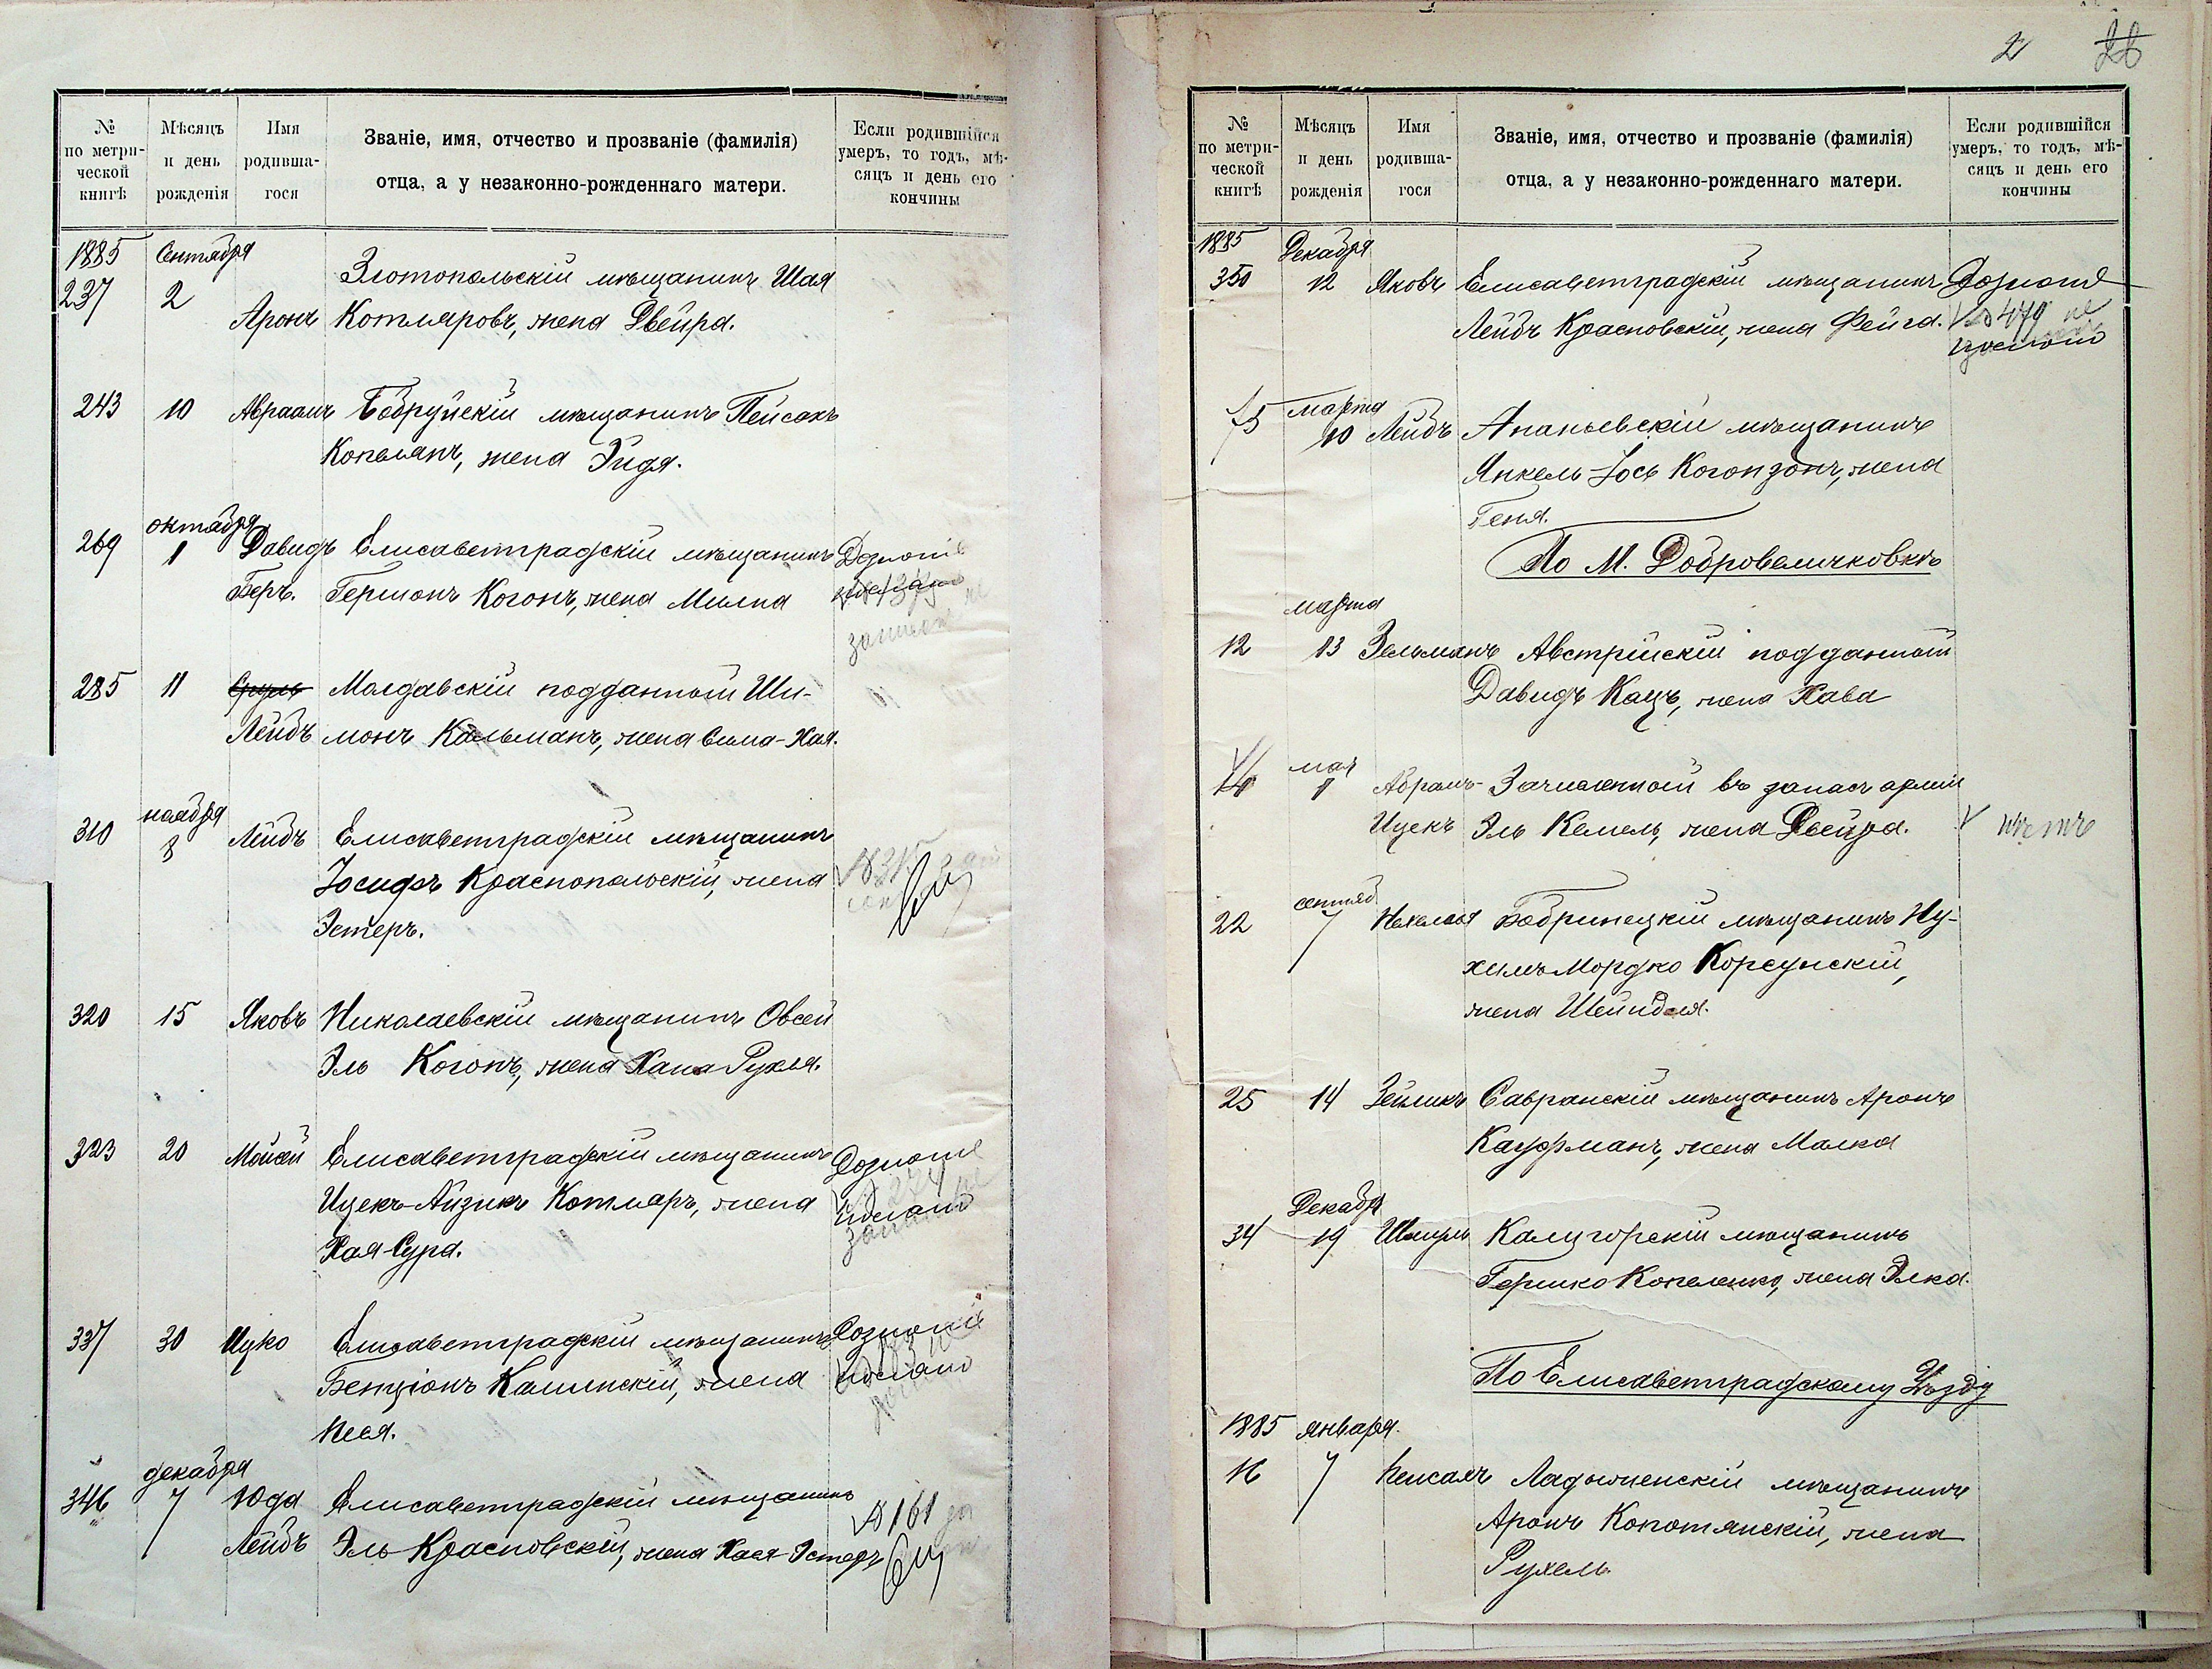 № по метри-ческой книгѣ
Мѣсяцъ и день рожденія
Имя родивша-гося
Званіе, имя, отчество и прозваніе (фамилія) отца, а у незаконно-рожденнаго матери.
Если родившійся умеръ, то годъ, мѣ-сяцъ и день его кончины
1885 Сентября
237 2 Златопольскій мѣщанинъ Шая
Аронъ Котляровъ, жена Двейра.
243 10 Авраамъ Бобруйскій мѣщанинъ Пейсахъ
Копеланъ, жена Эйдя.
октября
269 1 Давидъ Елисаветградскій мѣщанинъ
Беръ. Гершонъ Когонъ, жена Милка
285 11 Сруль Молдавскій подданный Ши-
Лейбъ монъ Кальманъ, жена Сима-Хая.
ноября
310 8 Лейбъ Елисаветградскій мѣщанинъ
Іосифъ Краснопольскій, жена
Эстеръ.
320 15 Яковъ Николаевскій мѣщанинъ Овсей
Эль Когонъ, жена Хана Рухля.
323 20 Мойсей Елисаветградскій мѣщанинъ
Ицекъ-Айзикъ Котляръ, жена
Хая-Сура.
337 30 Ицко Елисаветградскій мѣщанинъ
Бенціонъ Калинскій, жена
Песя.
декабря
346 7 Юда Елисаветградскій мѣщанинъ
№ 161
Лейбъ Эль Красновскій, жена Хая-Эстеръ
2 26
№ по метри-ческой книгѣ
Мѣсяцъ и день рожденія
Имя родивша-гося
Званіе, имя, отчество и прозваніе (фамилія) отца, а у незаконно-рожденнаго матери.
Если родившійся умеръ, то годъ, мѣ-сяцъ и день его кончины
1885 Декабря
350 12 Яковъ Елисаветградскій мѣщанинъ
Лейбъ Красновскій, жена Фейга. № 479 не
марта
75 10 Лейбъ Ананьевскій мѣщанинъ
Янкель-Іось Когонзонъ, жена
Геня.
По М. Добровеличковкѣ
марта
12 13 Зельманъ Австрійскій подданный
Давидъ Кацъ, жена Хава
мая
14 1 Абрамъ- Зачисленный въ запасъ арміи
Ицекъ Эль Кемель, жена Двейра. нѣтъ
сентяб
22 7 Бобринецкій мѣщанинъ Ну-
химъ Мордко Корсунскій,
жена Шейндля.
25 14 Зейликъ Савранскій мѣщанинъ Аронъ
Кауфманъ, жена Малка
Декабр
34 19 Шмуль Калигорскій мѣщанинъ
Гершко Копеленко, жена Элка.
По Елисаветградскому Уѣзду
1885 января.
16 7 Пейсахъ Ладыженскій мѣщанинъ
Аронъ Копотянскій, жена
Рухель